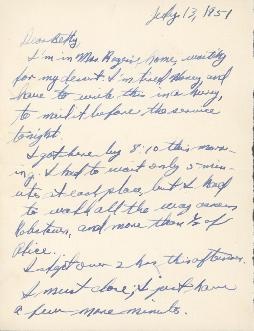 July 13, 1951
Dear Betty
I'm in Mrs Rogers' home, waiting
for my desert. I'm tired Honey, and
have to write this in a hurry,
to mail it before the service
tonight.
I got here by 8:10 this morn-
ing. I had to wait only 5 min-
utes at each place, but I had
to walk all the way across
Robstown, and more than ½ of
Alice.
I slept over 2 hrs. this afternoon.
I must close; I just have
a few more minutes.